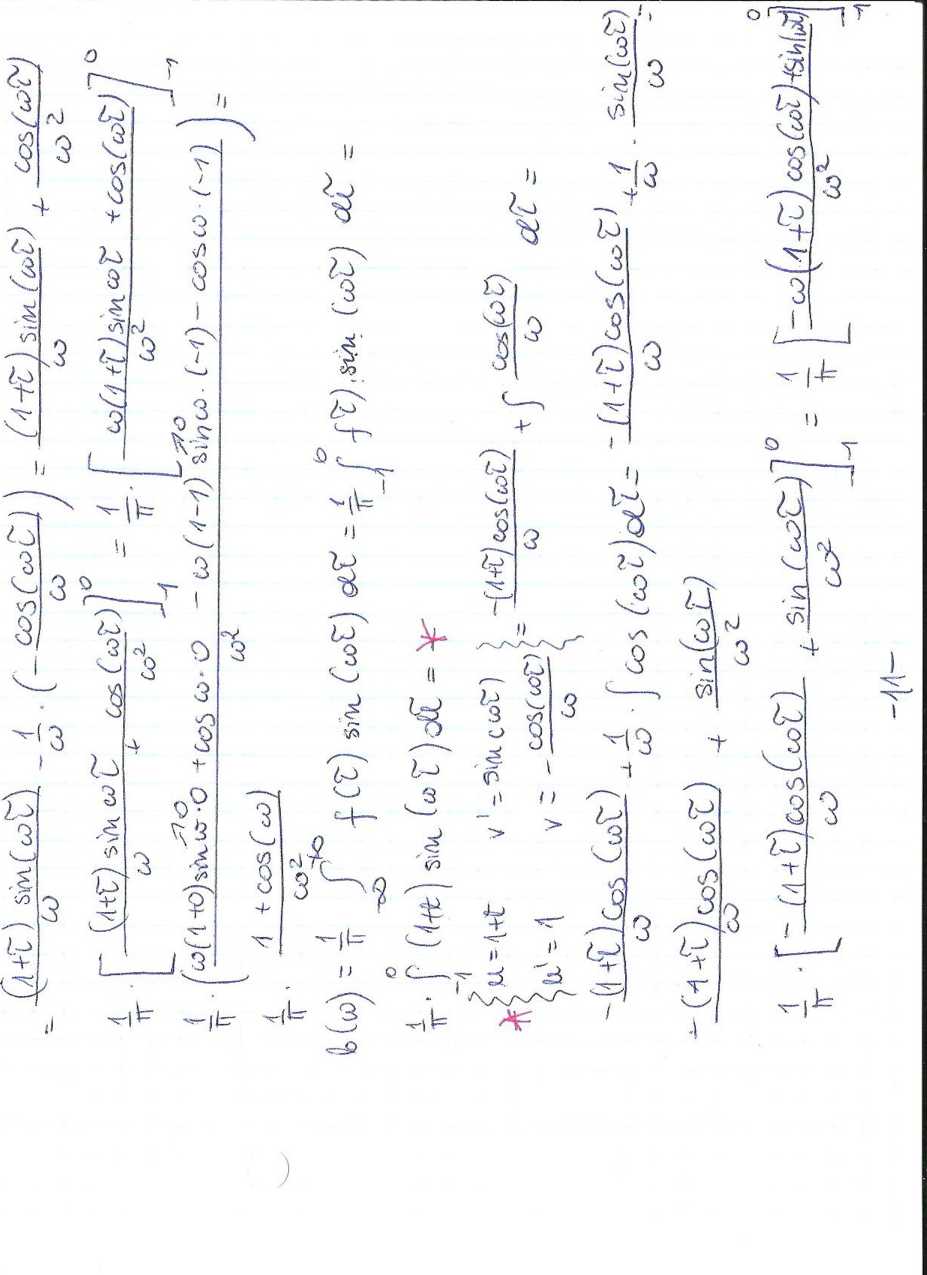 = (1+τ) sin(ωτ)/ω - 1/ω · (- cos(ωτ)/ω) = (1+τ) sin(ωτ)/ω + cos(ωτ)/ω²
1/π · [ (1+τ) sin ωτ/ω + cos(ωτ)/ω² ]₋₁⁰ = 1/π · [ ω(1+τ) sin ωτ + cos(ωτ)/ω² ]₋₁⁰
1/π · ( ω(1+0) sin ω·0 →0 + cos ω·0 - ω(1-1) →0 sin ω·(-1) - cos ω·(-1)/ω² ) =
1/π · 1 + cos(ω)/ω²
b(ω) = 1/π ∫₋∞⁺∞ f(τ) sin(ωτ) dτ = 1/π ∫₋₁⁰ f(τ) · sin(ωτ) dτ =
1/π · ∫₋₁⁰ (1+t) sin(ωτ) dτ = *
* u = 1+t v' = sin(ωτ) = -(1+τ) cos(ωτ)/ω + ∫ cos(ωτ)/ω dτ =
u' = 1 v = - cos(ωτ)/ω
- (1+τ) cos(ωτ)/ω + 1/ω · ∫ cos(ωτ) dτ = - (1+τ) cos(ωτ)/ω + 1/ω · sin(ωτ)/ω =
÷ (1+τ) cos(ωτ)/ω + sin(ωτ)/ω²
1/π · [ -(1+τ) cos(ωτ)/ω + sin(ωτ)/ω² ]₋₁⁰ = 1/π [ -ω(1+τ) cos(ωτ) + sin(ωτ)/ω² ]₋₁⁰
-11-